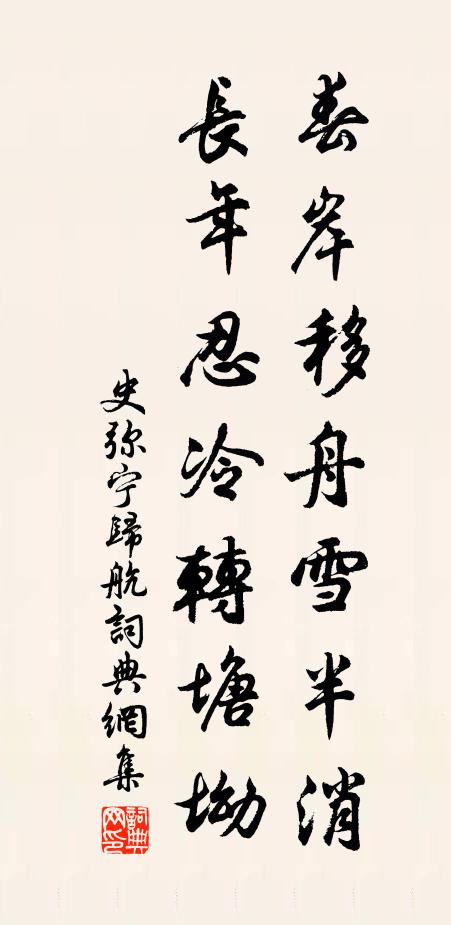 春岸移舟雪半消
長年忍冷轉塘坳
史弥宁歸航詞典網集
詞典網印